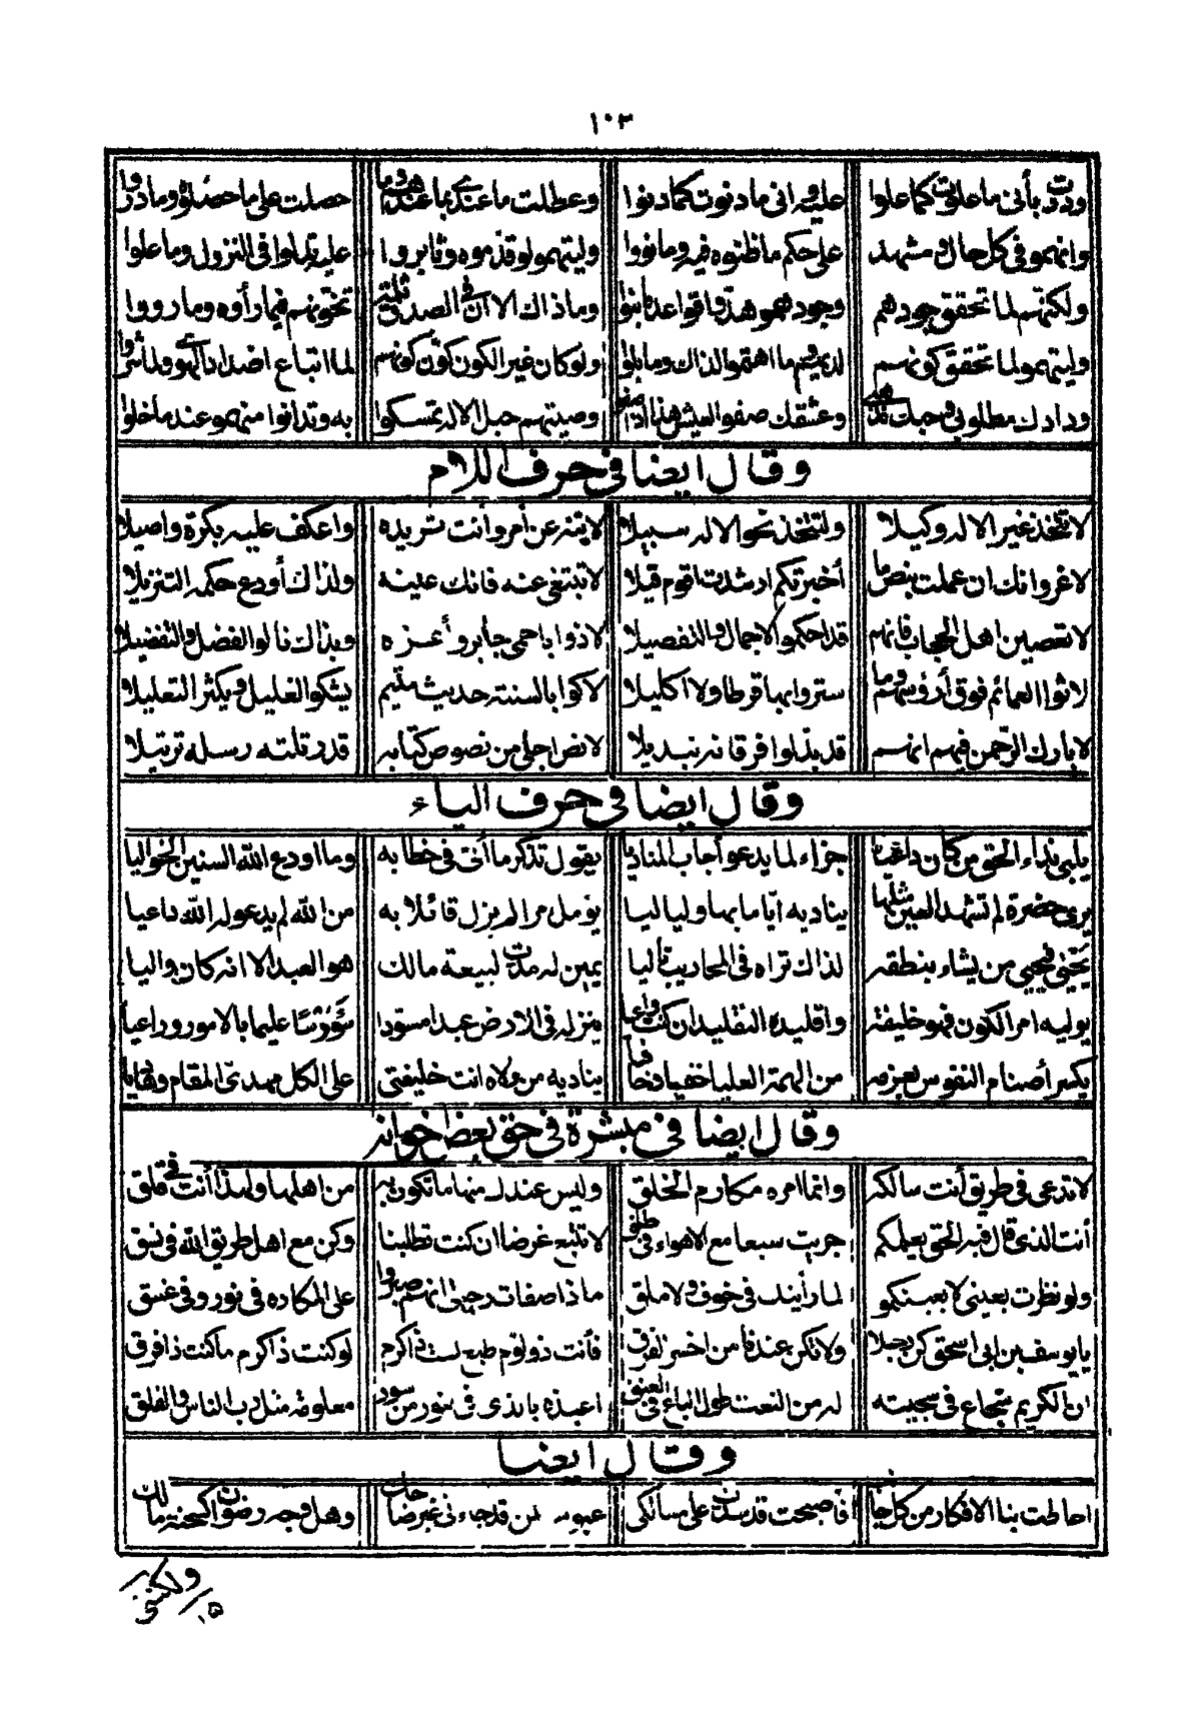 ١٠٣
وددت بأني ما علوت كما علوا عليه واني ما دنوت كما دنوا وعطلت ما عندي بما عندهم وما حصلت على ما حصلوه وما دروا
وانهمو في كل حال ومشهد على حكم ما ظنوه فيه وما نووا وليتهمو لو قدموه وثابروا عليه تملوا في النزول وما علوا
ولكنهم لما تحقق جودهم وجودهمو هدوا قواعد ما بنوا وما ذاك الا أن في الصدق قلته تخونهم فيما رأوه وما رووا
وليتهمو لما تحقق كونهم لديهم وما اهتموا لذاك وما بلوا ولو كان غير الكون كون كونهم لما اتباع اضداد لهمو ولا شروا
ودادك مطلوبي وحبك مذهبي وعشقك صفو العيش هذا اذا صفوا وصيتهم حبل الاله تمسكوا به وتدانوا منهمو عند ما خلوا
وقال ايضا في حرف اللام
لا تتخذ غير الاله وكيلا ولتتخذ نحو الاله سبيلا لا يتنه عن أمر وأنت تريده واعكف عليه بكرة واصيلا
لا غرو انك ان عملت بنص ما أخبرتكم ارشدت اقوم قيلا لا تبتغي عنه فانك عينه ولذاك أودع حكمه التنزيلا
لا تعصين اهل الحجاب فانهم قد احكموا الاجمال والتفصيلا لاذوا باحمى جابر وأعزه وبذاك نالوا الفضل والتفضيلا
لاثوا العمائم فوق أرؤسهم وما ستروا بها قرطا ولا اكليلا لاكوا بالسنة حديث متيم يشكو الغليل ويكثر التعليلا
لا بارك الرحمن فيهم انهم قد بدلوا فرقانه تبديلا لا نص اجلى من نصوص كتابه قد رتلته رسله ترتيلا
وقال ايضا في حرف الياء
يلبي نداء الحق من كان داعيا جزاء لما يدعو أجاب المناديا يقول تذكر ما أتى في خطابه وما اودع الله السنين الخواليا
يرى حضرة لم تشهد العين مثلها يناديه أياما بها ولياليا يؤمل مرا لم يزل قائلا به من الله لم يدعو له الله داعيا
يحيى فيحيي من يشاء بنطقه لذاك تراه في المحاريب تاليا يمين له مدت لبيعة مالك هو العبد الا انه كان واليا
يوليه امر الكون فهو خليفة واقليده التقليد ان كنت واعيا ينزله في الارض عبدا مسودا سؤوسا عليما بالامور وراعيا
يكسر أصنام النفوس بعزمه من الهمة العليا خفيا وخافيا يناديه من ولاه انت خليفتي على الكل مهدي المقام وهاديا
وقال ايضا في مبشرة في حق بعض اخوانه
لا تدعي في طريق أنت سالكه وانما امره مكارم الخلق وليس عندك منها ما تكون به من اهلها ولهذا أنت في قلق
أنت الذي قال فيه الحق يعلمكم جريت سبعا مع الاهواء في طلق لا تتبع غرضا ان كنت تطلبنا وكن مع اهل طريق الله في نسق
ولو نظرت بعيني لا بعينكمو لما رأيتك في خوف ولا ملق ماذا صفات رجالي انهم صبروا على المكاره في نور وفي غسق
يا يوسف بن ابي اسحق كن رجلا ولا تكن عندنا من اخسر الفرق فأنت ذو لؤم طبع لست ذا كرم لو كنت ذا كرم ما كنت ذا فرق
ان الكريم شجاع في سجيته له من النعت طول الباع في العنق اعيذه بالذي في سور من سور معلومة مثل رب الناس والفلق
وقال ايضا
احاطت بنا الافكار من كل جانب فاصبحت قد سدت علي مسالكي عبوسه من قد جاءني غير ضاحك وهل وجه رضوان كسحنة مالك
ولكنني